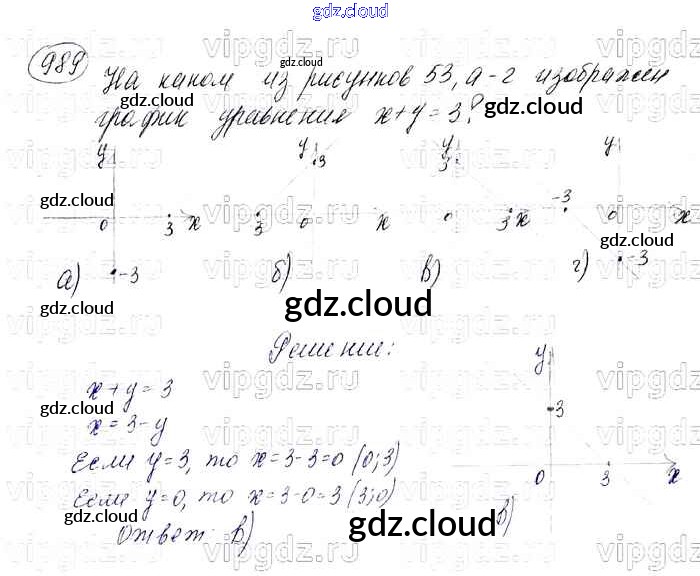 gdz.cloud
989 На каком из рисунков 53, а-г изображен
график уравнения x+y=3?
y y 3 y 3
0 3 x 3 0 x 0 3 x -3 0 x
а) -3 б) в) г) -3
gdz.cloud
Решение:
x+y=3
x=3-y
Если y=3, то x=3-3=0 (0;3)
Если y=0, то x=3-0=3 (3;0)
Ответ: в)
y
3
0 3 x
в)
gdz.cloud
vipgdz.ru